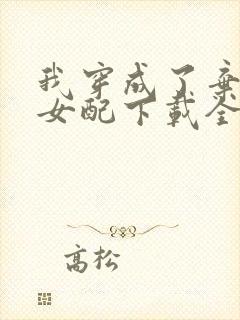 我穿成了弃
女配下载全
高松